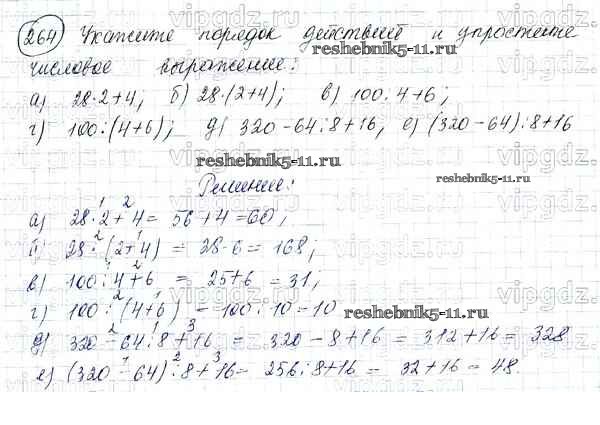 264 Укажите порядок действий и упростите
числовое выражение:
а) 28·2+4; б) 28·(2+4); в) 100:4+6;
г) 100:(4+6); д) 320-64:8+16, е) (320-64):8+16
Решение:
1 2
а) 28·2+4= 56+4=60;
2 1
б) 28·(2+4) = 28·6= 168;
1 2
в) 100:4+6 = 25+6= 31;
2 1
г) 100:(4+6) = 100:10=10
2 1 3
д) 320-64:8+16= 320-8+16= 312+16= 328
1 2 3
е) (320-64):8+16= 256:8+16= 32+16= 48.
reshebnik5-11.ru
reshebnik5-11.ru
reshebnik5-11.ru
reshebnik5-11.ru
vipgdz.